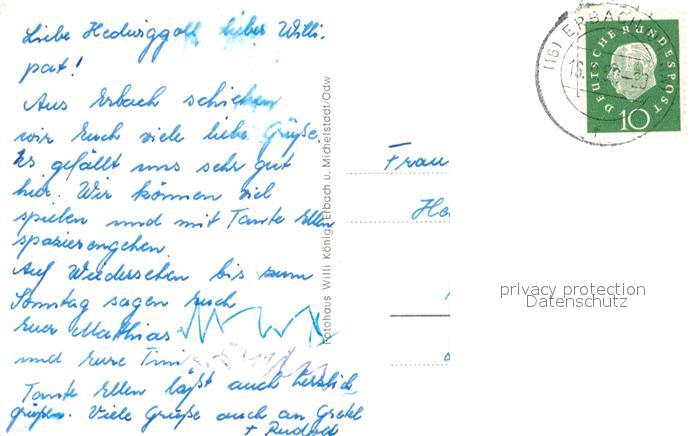 Liebe Hedwiggotl, lieber Willi-
pat!
Aus Erbach schicken
wir Euch viele liebe Grüße.
Es gefällt uns sehr gut
hier. Wir können viel
spielen und mit Tante Ellen
spazierengehen.
Auf Wiedersehen bis zum
Sonntag sagen Euch
Euer Mathias
und Eure Tini
Tante Ellen läßt auch herzlich
grüßen. Viele Grüße auch an Gretel
+ Rudolf
Fotohaus Willi König, Erbach u. Michelstadt/Odw
Frau
(16) ERBACH
DEUTSCHE BUNDESPOST
10
privacy protection
Datenschutz